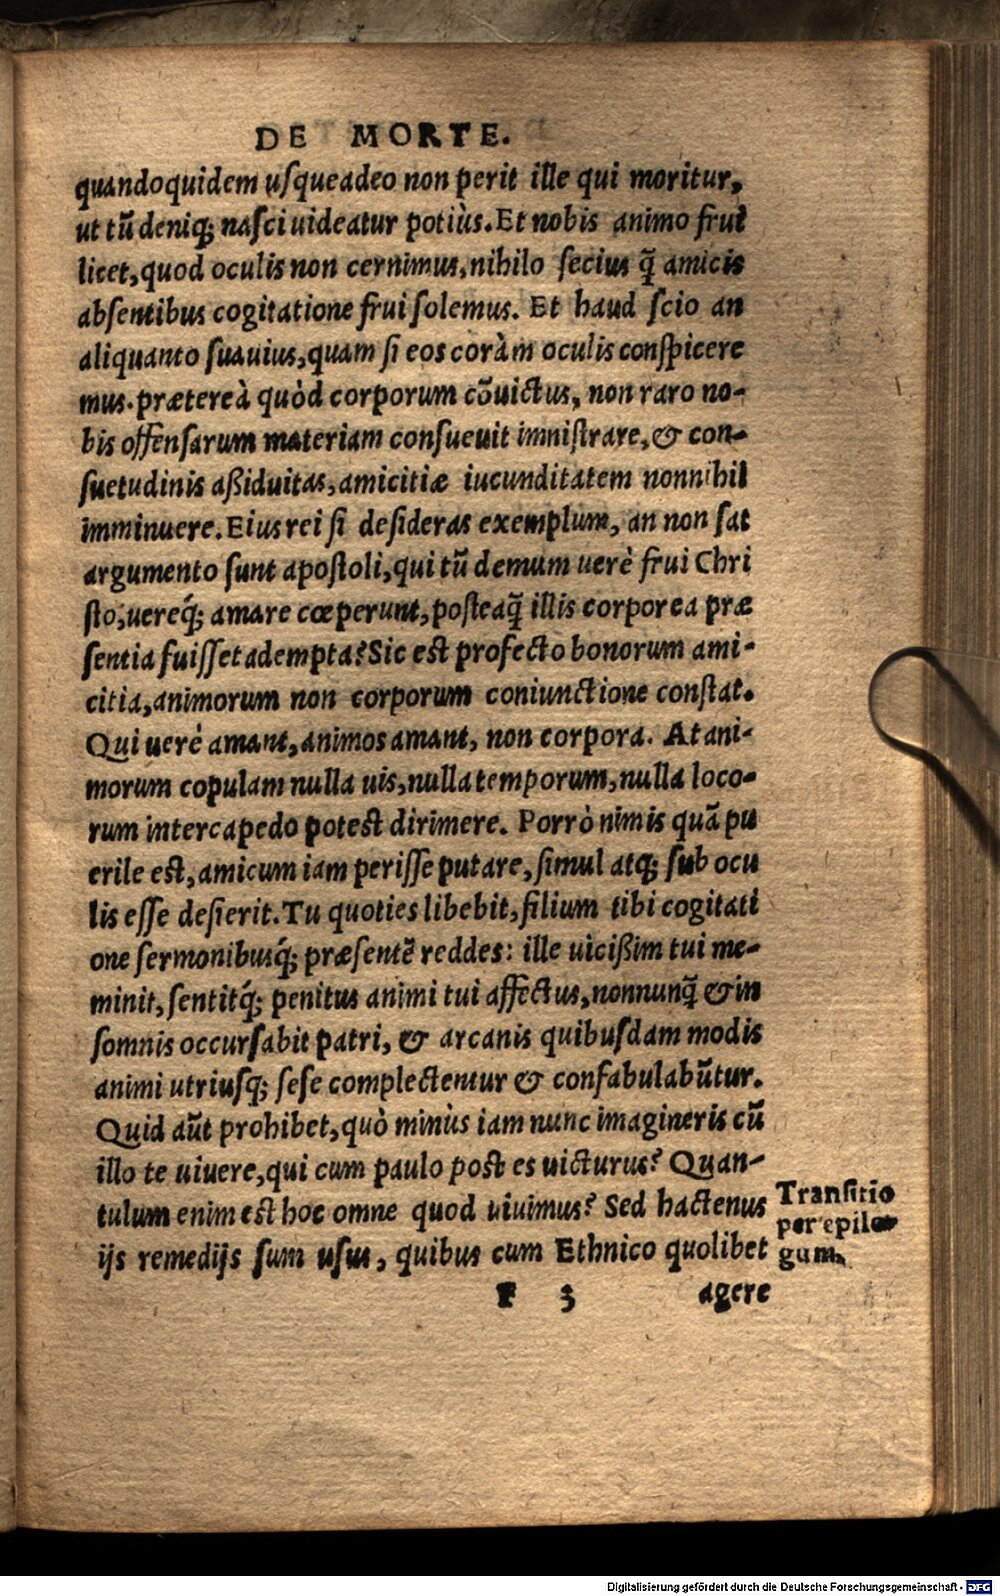 DE MORTE.
quandoquidem uſqueadeo non perit ille qui moritur,
ut tū deniq; naſci uideatur potiùs. Et nobis animo frui
licet, quod oculis non cernimus, nihilo ſecius q̄ amicis
abſentibus cogitatione frui ſolemus. Et haud ſcio an
aliquanto ſuauius, quam ſi eos coràm oculis conſpicere
mus. prætereà quòd corporum cōuictus, non raro no-
bis offenſarum materiam conſueuit imniſtrare, & con-
ſuetudinis aßiduitas, amicitiæ iucunditatem nonnihil
imminuere. Eius rei ſi deſideras exemplum, an non ſat
argumento ſunt apoſtoli, qui tū demum uerè frui Chri
ſto, uereq́; amare cœperunt, poſteaq̄ illis corporea præ
ſentia fuiſſet adempta? Sic eſt profecto bonorum ami-
citia, animorum non corporum coniunctione conſtat.
Qui uerè amant, animos amant, non corpora. At ani-
morum copulam nulla uis, nulla temporum, nulla loco-
rum intercapedo poteſt dirimere. Porrò nimis quā pu
erile eſt, amicum iam periſſe putare, ſimul atq; ſub ocu
lis eſſe deſierit. Tu quoties libebit, filium tibi cogitati
one ſermonibusq́; præſentē reddes: ille uicißim tui me-
minit, ſentitq́; penitus animi tui affectus, nonnunq̄ & in
ſomnis occurſabit patri, & arcanis quibuſdam modis
animi utriuſq; ſeſe complectentur & confabulabūtur.
Quid aūt prohibet, quò minùs iam nunc imagineris cū
illo te uiuere, qui cum paulo poſt es uicturus? Quan-
tulum enim eſt hoc omne quod uiuimus? Sed hactenus
ijs remedijs ſum uſus, quibus cum Ethnico quolibet
Tranſitio
per epilo-
gum.
F 3 agere
Digitalisierung gefördert durch die Deutsche Forschungsgemeinschaft - DFG